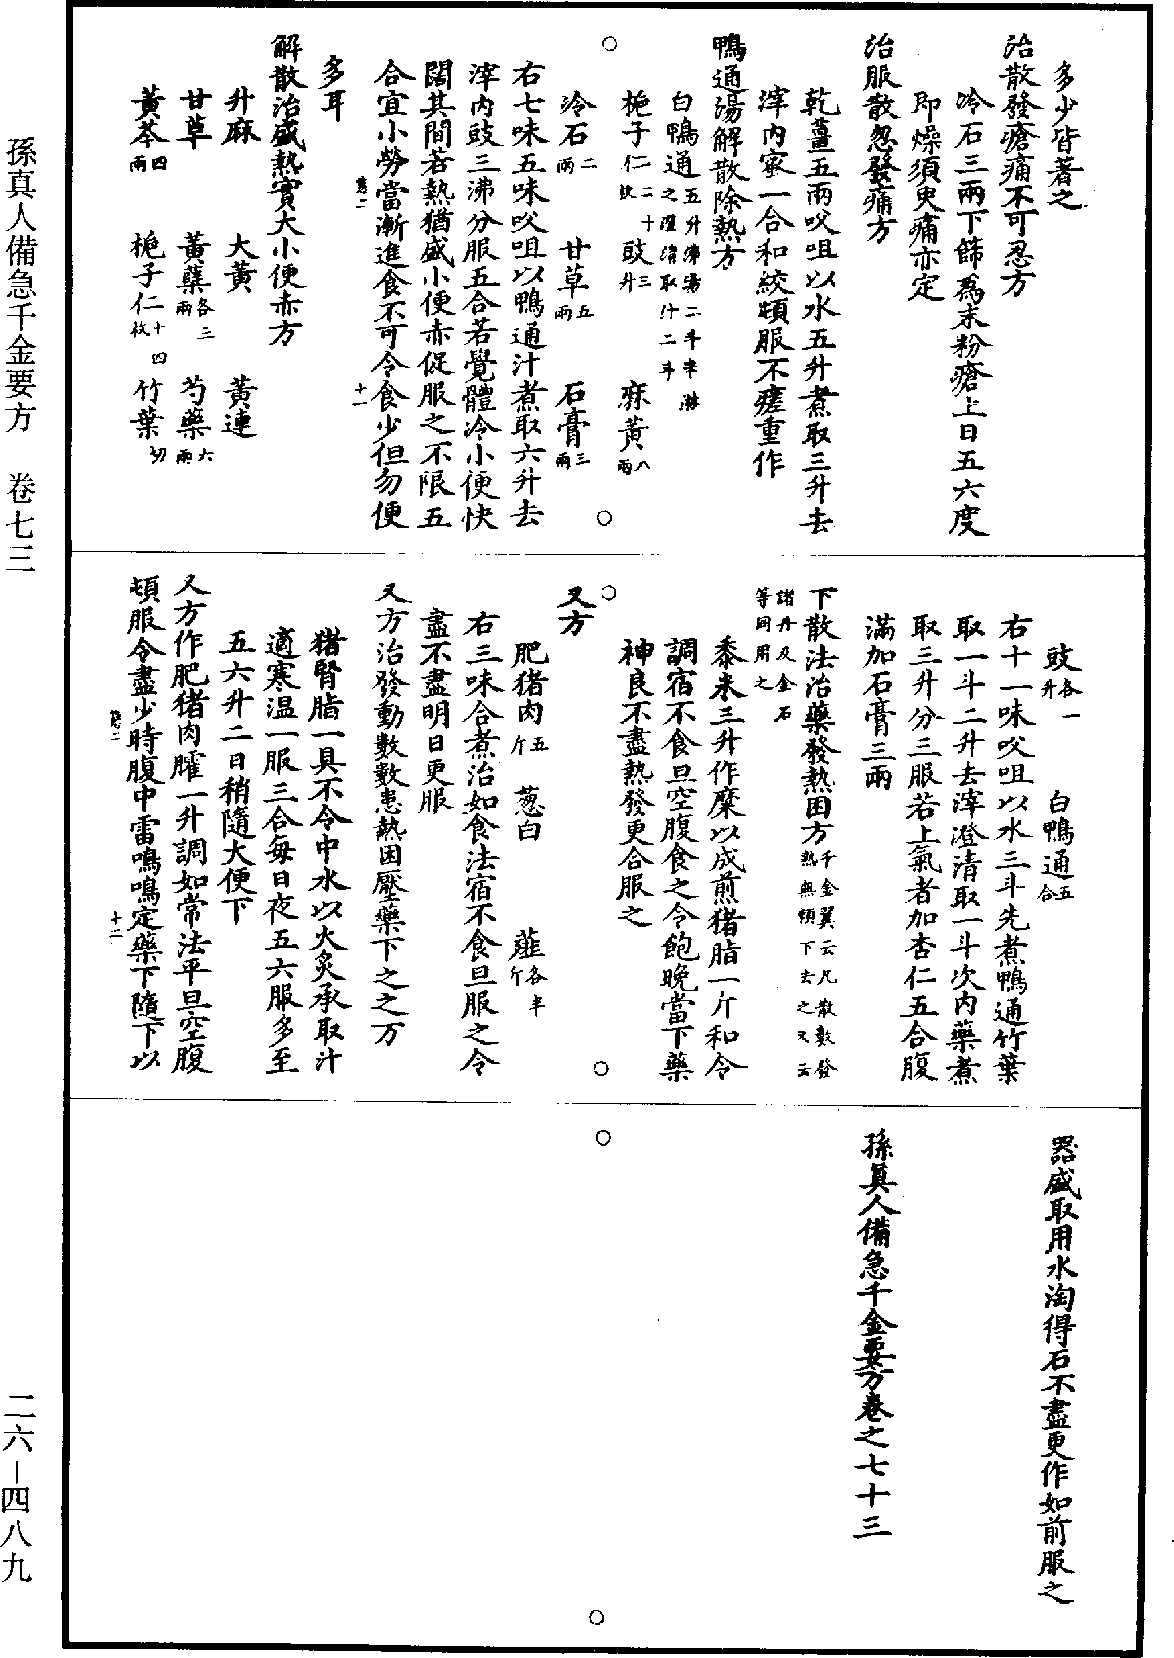 多少皆著之
治散發瘡痛不可忍方
冷石三兩下篩為末粉瘡上日五六度
即燥須臾痛亦定
治服散忽發痛方
乾薑五兩㕮咀以水五升煮取三升去
滓內蜜一合和絞頓服不瘥重作
鴨通湯解散除熱方
白鴨通五升沸湯二斗半淋之澄清取汁二斗
梔子仁二十枚 豉三升 麻黃八兩
冷石二兩 甘草五兩 石膏三兩
右七味五味㕮咀以鴨通汁煮取六升去
滓內豉三沸分服五合若覺體冷小便快
闊其間若熱猶盛小便赤促服之不限五
合宜小勞當漸進食不可令食少但勿便
多耳
解散治盛熱實大小便赤方
升麻 大黃 黃連
甘草 黃蘗各三兩 芍藥六兩
黃芩四兩 梔子仁十四枚 竹葉切
豉各一升 白鴨通五合
右十一味㕮咀以水三斗先煮鴨通竹葉
取一斗二升去滓澄清取一斗次內藥煮
取三升分三服若上氣者加杏仁五合腹
滿加石膏三兩
下散法治藥發熱困方千金翼云凡散數發熱無賴下去之又云
諸丹及金石等同用之
黍米三升作糜以成煎猪脂一斤和令
調宿不食旦空腹食之令飽晚當下藥
神良不盡熱發更合服之
又方
肥猪肉五斤 葱白 薤各半斤
右三味合煮治如食法宿不食旦服之令
盡不盡明日更服
又方治發動數數患熱困壓藥下之之方
猪腎脂一具不令中水以火炙承取汁
適寒溫一服三合每日夜五六服多至
五六升二日稍隨大便下
又方作肥猪肉臛一升調如常法平旦空腹
頓服令盡少時腹中雷鳴鳴定藥下隨下以
器盛取用水淘得石不盡更作如前服之
孫真人備急千金要方卷之七十三
孫真人備急千金要方 卷七三
二六－四八九